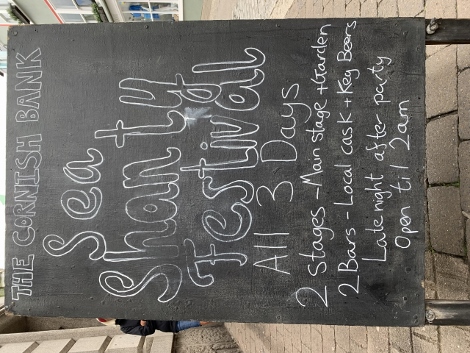 THE CORNISH BANK
Sea
Shanty
Festival
All 3 Days
2 Stages - Main stage + Garden
2 Bars - Local cask + Keg Beers
Late night after party
Open til 2am